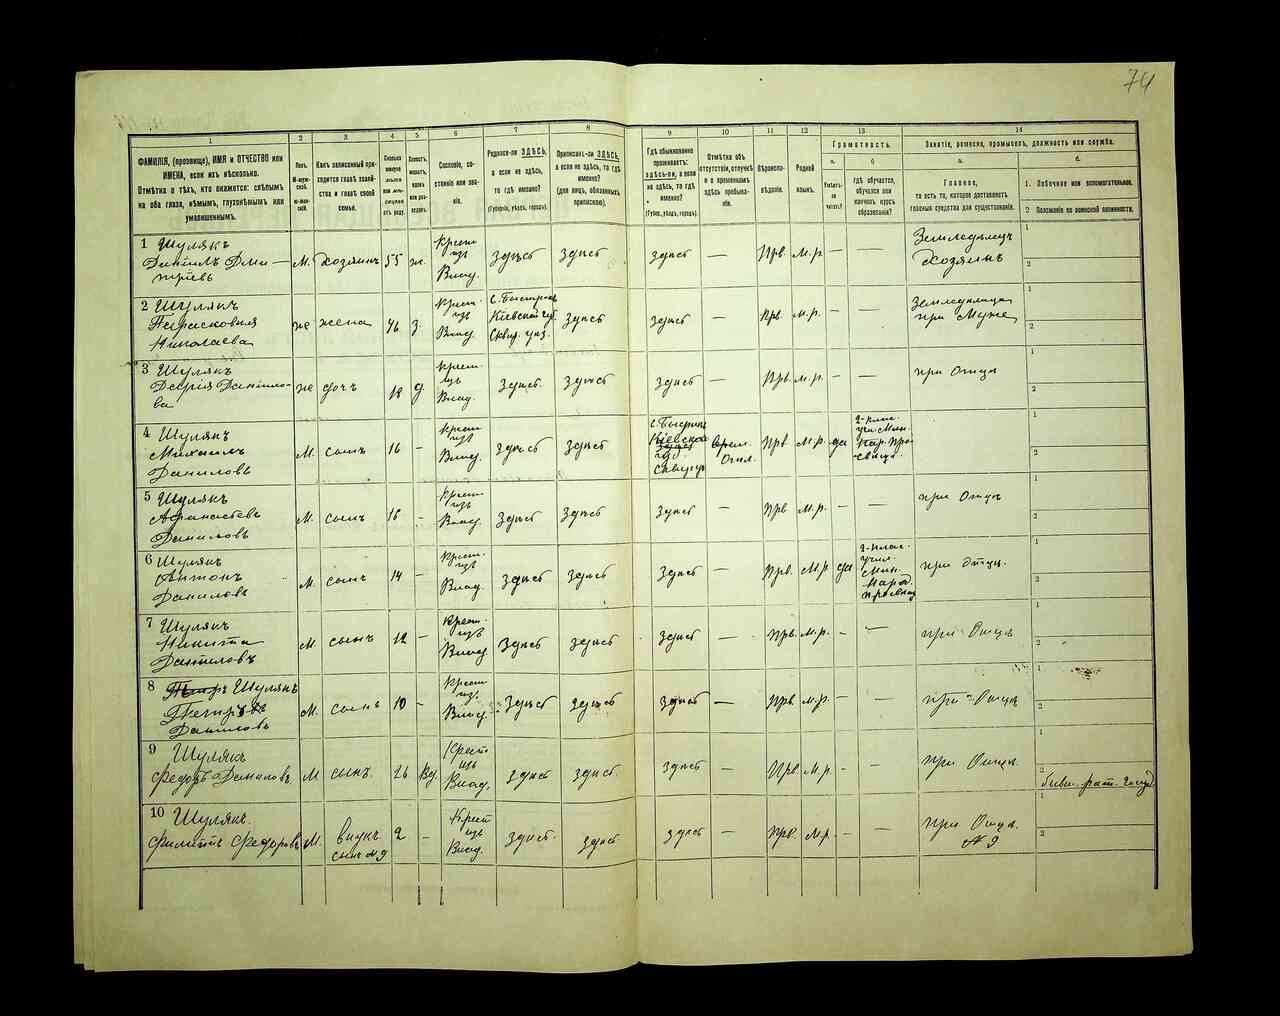 74
1 2 3 4 5 6 7 8 9 10 11 12 13 14
ФАМИЛІЯ, (прозвище), ИМЯ и ОТЧЕСТВО или ИМЕНА, если ихъ нѣсколько.
Отмѣтка о тѣхъ, кто окажется: слѣпымъ на оба глаза, нѣмымъ, глухонѣмымъ или умалишеннымъ.
Полъ.
Какъ записанный приходится главѣ хозяйства и главѣ своей семьи.
Сословіе, состояніе или званіе.
Родился-ли ЗДѢСЬ, а если не здѣсь, то гдѣ именно?
(Губернія, уѣздъ, городъ).
Приписанъ-ли ЗДѢСЬ, а если не здѣсь, то гдѣ именно?
(для лицъ, обязанныхъ припискою).
Гдѣ обыкновенно проживаетъ: здѣсь-ли, а если не здѣсь, то гдѣ именно?
(Губер., уѣздъ, городъ).
Отмѣтка объ отсутствіи, отлучкѣ и о временномъ здѣсь пребываніи.
Вѣроисповѣданіе.
Родной языкъ.
Грамотность.
а. б.
Умѣетъ-ли читать?
гдѣ обучается, обучался или кончилъ курсъ образованія?
Занятіе, ремесло, промыселъ, должность или служба.
а. б.
Главное,
то есть то, которое доставляетъ главныя средства для существованія.
1. Побочное или вспомогательное.
2 Положеніе по воинской повинности.
1 Шулякъ
Даніилъ Дми—
тріевъ
М. хозяинъ 55 ж. Крест. изъ Влад. здѣсь здѣсь здѣсь — Прв. м.р. — —
Земледѣлецъ
хозяинъ
1
2
2 Шулякъ
Парасковия
Николаева
же жена 46 з. Крест. изъ Влад.
Кіевской губ.
Сквир. уѣз.
здѣсь здѣсь — Прв. м.р. — —
при Мужѣ
1
2
3 Шулякъ
Данило-
ва
же дочь 18 д Крест. изъ Влад. здѣсь. здѣсь здѣсь — Прв. м.р. — —
при Отцѣ
1
2
4 Шулякъ
Михаилъ
Даниловъ
М. сынъ 16 — Крест. изъ Влад. здѣсь здѣсь
Кіевской
Прв. м.р. да
2-клас.
1
2
5 Шулякъ
Даниловъ
М. сынъ 16 — Крест. изъ Влад. здѣсь здѣсь здѣсь — Прв м.р. — —
при Отцѣ
1
2
6 Шулякъ
Антонъ
Даниловъ
М. сынъ 14 — Крест. изъ Влад. здѣсь здѣсь здѣсь — Прв. м.р да
2-клас.
учил.
Мин.
Народ.
при отцѣ.
1
2
7 Шулякъ
Никита
Даниловъ
М. сынъ 12 — Крест. изъ Влад. здѣсь здѣсь здѣсь — Прв. м.р. — —
при Отцѣ
1
2
8 Шулякъ
Петръ
Даниловъ
М. сынъ 10 — Крест. изъ Влад. здѣсь здѣсь здѣсь — Прв. м.р. — —
при Отцѣ
1
2
9 Шулякъ
Федоръ Даниловъ
М сынъ. 26 Вд. Крест изъ Влад. здѣсь здѣсь. здѣсь — Прв. м.р. — —
при Отцѣ.
1
2
10 Шулякъ.
Филиппъ Федоровъ
М. внукъ
сынъ №9
2 — Крест изъ Влад. здѣсь. здѣсь здѣсь — Прв. м.р. — —
при Отцѣ.
№ 9
1
2